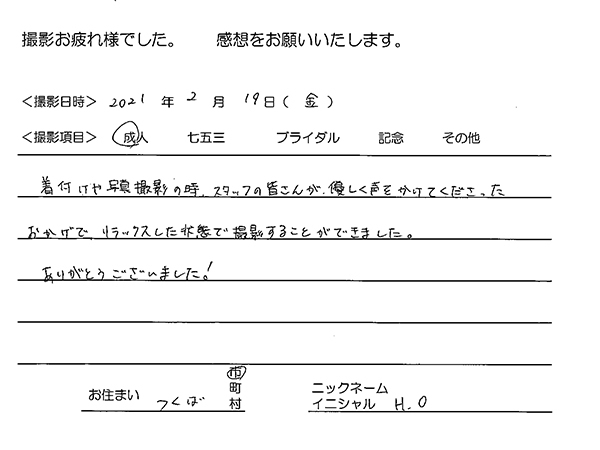 撮影お疲れ様でした。 感想をお願いいたします。
＜撮影日時＞ 2021 年 2 月 19 日（ 金 ）
＜撮影項目＞ 成人 七五三 ブライダル 記念 その他
着付けや写真撮影の時、スタッフの皆さんが、優しく声をかけてくださった
おかげで リラックスした状態で撮影することができました。
ありがとうございました!
お住まい つくば 市 町 村 ニックネーム イニシャル H.O